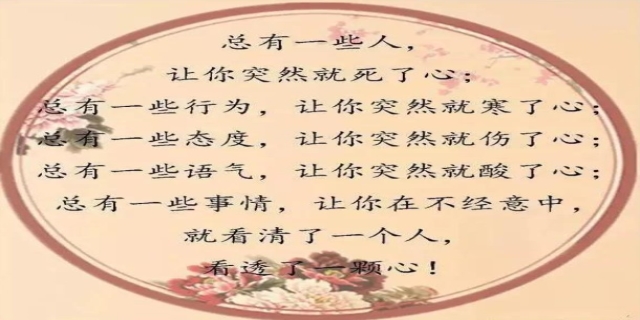 总有一些人，
让你突然就死了心；
总有一些行为，让你突然就寒了心；
总有一些态度，让你突然就伤了心；
总有一些语气，让你突然就酸了心；
总有一些事情，让你在不经意中，
就看清了一个人，
看透了一颗心！